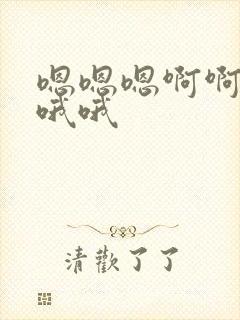 嗯嗯嗯啊啊
哦哦
清歡了了